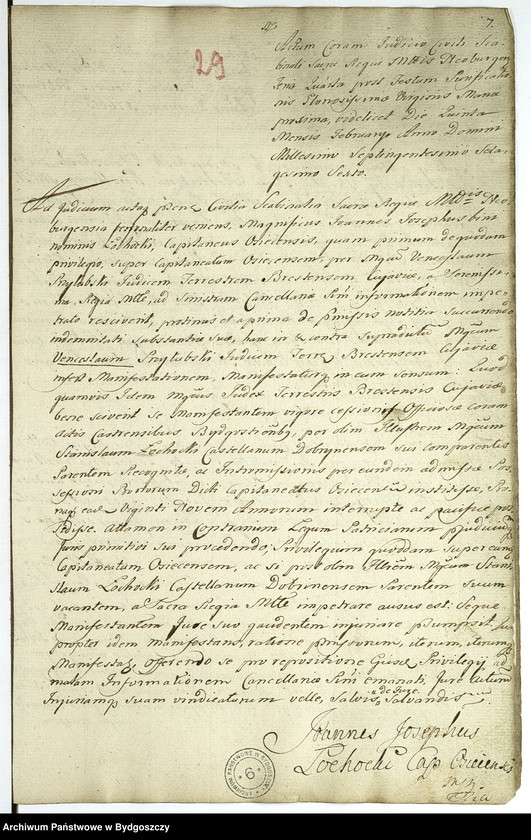 7.
29
Actum Coram Judicio Civili Sca-
binali Sacræ Regiæ Mttis Neoburgen
Feria Quarta post Festum Purificatio
nis Gloriosissimæ Virginis Mariæ
proxima, videlicet Die Quinta
Mensis Februarij Anno Domini
Millesimo Septingentesimo Sexa-
gesimo Sexto.
Ad Judicium actaq præns Civilia Scabinalia Sacræ Regiæ Mttis Neo
burgensia personaliter veniens, Magnificus Joannes Josephus bini
nominis Łochocki, Capitaneus Osiecensis, quam primum de quodam
privilegio, super Capitaneatum Osiecensem, per Mgcum Venceslaum
Przyłubski Judicem Terrestrem Brestensem Cujaviæ, a Serenissi-
ma Regia Mtte, ad Sinistram Cancellariæ Sini informationem impe-
trato rescivent, protinus et a prima de præmissis notitia succurrendo
indemnitati Substantiæ Suæ, hanc in et contra Supradictum Mgcum
Venceslaum Przyłubski Judicem Terræ Brestensem Cujaviæ
infert Manifestationem, Manifestaturq in eum sensum: Quod
quamvis Idem Mgcus Judex Terrestris Brestensis Cujaviæ
bene sciverit se Manifestantem vigore cessionis Officiosæ coram
Actis Castrensibus Bydgostien, per olim Illustrem Mgcum
Stanislaum Łochocki Castellanum Dobrynensem sui comparentis
Parentem Recognitæ, ac Intromissionis per eundem admissæ Pos-
sessioni Bonorum Dicti Capitaneatus Osiecen institisse, Bo-
naq ea Viginti Novem Annorum interrupte ac pacifice pos
sedisse. Attamen in Contrarium Legum Patriarum præjudiciumq
Juris primitivi sui procedendo, Privilegium quoddam super eum
Capitaneatum Osiecensem, ac si post olim Illrem Mgcum Stani
slaum Łochocki Castellanum Dobrinensem Parentem Suum
vacantem, a Sacra Regia Mtte impetrare ausus est: Seque
Manifestantem Jure suo gaudentem injuriare præsumpsit,
propter idem manifestans, ratione præmissorum, iterum, iterumq
Manifestatq offerendo se pro repositione ejus Privilegij ad
malam Informationem Cancellariæ Sini emanati, Jure acturum
Injuriamq suam vindicaturum velle, salvis de Jure Salvandis
Joannes Josephus
Łochocki Cap Osiecensis
ARCHIWUM PAŃSTWOWE W BYDGOSZCZY
6
Archiwum Państwowe w Bydgoszczy